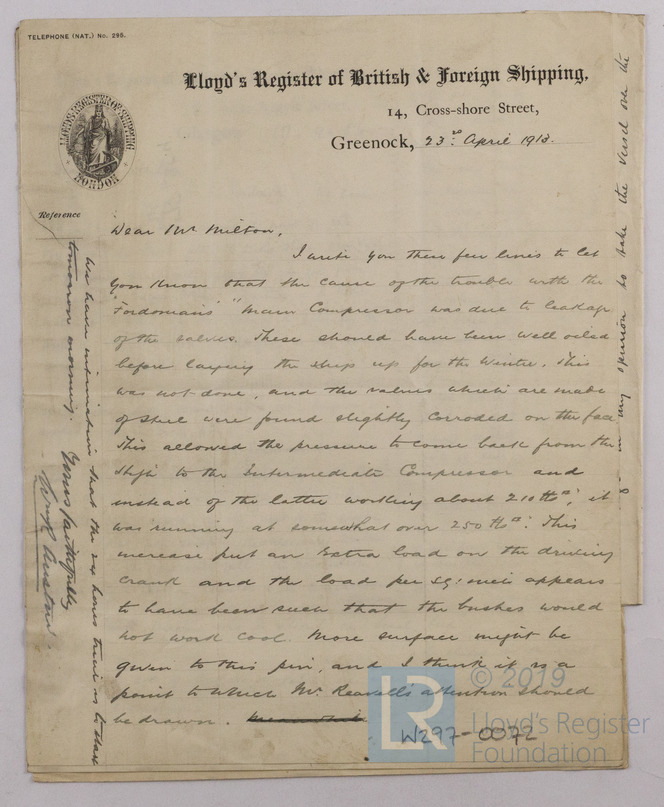 TELEPHONE (NAT.) No. 295.
Lloyd's Register of British & Foreign Shipping,
14, Cross-shore Street,
Greenock, 23rd April 1913.
LLOYD'S REGISTER OF BRITISH & FOREIGN SHIPPING
LONDON
Reference
Dear Mr Milton,
I write you these few lines to let
you know that the cause of the trouble with the
"Fordonian's" main Compressor was due to leakage
of the valves. These should have been well oiled
before laying the ship up for the Winter. This
was not done, and the valves which are made
of steel were found slightly corroded on the face
This allowed the pressure to come back from the
to the Intermediate Compressor and
instead of the latter working about 210 lbs; it
was running at somewhat over 250 lbs. This
increase put an extra load on the driving
crank and the load per sq: inch appears
to have been such that the bushes would
not work cool. More surface might be
given to this pin, and I think it is a
point to which Mr. Reavell's attention should
be drawn.
We have intimation that the six hours trial is to take
tomorrow morning.
Yours faithfully
Austin.
in my opinion to take the vessel over the
© 2019
LR
Lloyd's Register
Foundation
W297-0072